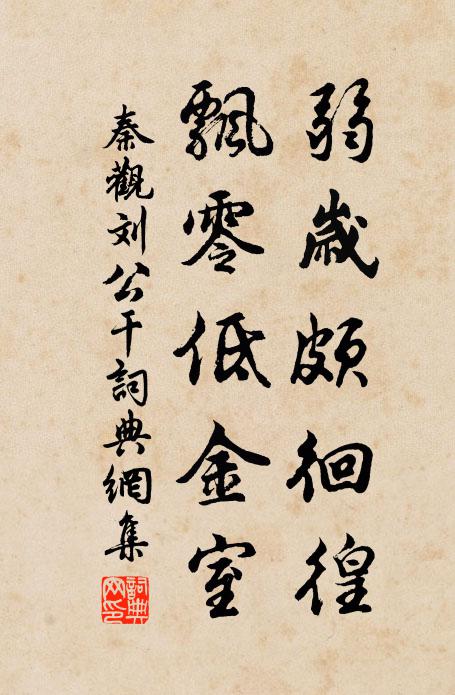 弱歲頗徊徨
飄零低金室
秦觀刘公干詞典網集
詞典網印